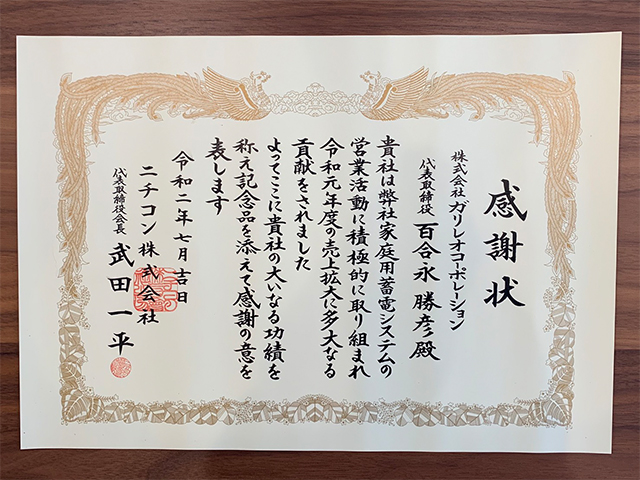 感謝状
株式会社 ガリレオコーポレーション
代表取締役 百合永 勝彦 殿
貴社は弊社家庭用蓄電システムの
営業活動に積極的に取り組まれ
令和元年度の売上拡大に多大なる
貢献をされました
よってここに貴社の大いなる功績を
称え記念品を添えて感謝の意を
表します
令和二年七月吉日
ニチコン株式会社
代表取締役会長 武田一平